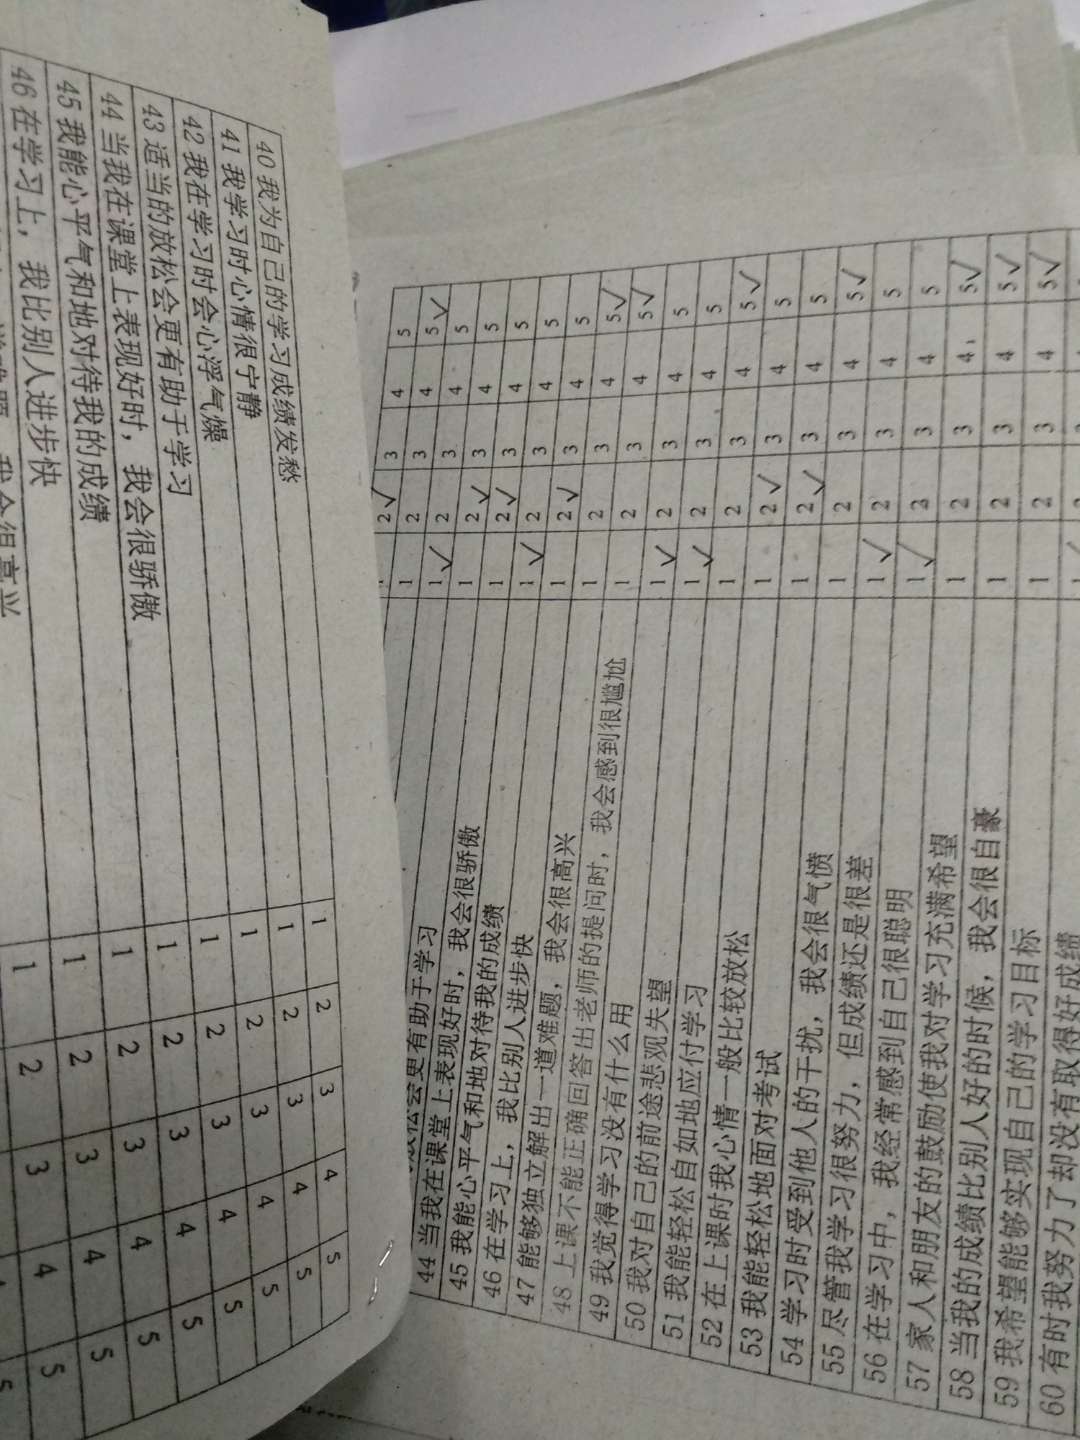 40 我为自己的学习成绩发愁 1 2 3 4 5
41 我学习时心情很宁静 1 2 3 4 5
42 我在学习时会心浮气燥 1 2 3 4 5
43 适当的放松会更有助于学习 1 2 3 4 5
44 当我在课堂上表现好时，我会很骄傲 1 2 3 4 5
45 我能心平气和地对待我的成绩 1 2 3 4 5
46 在学习上，我比别人进步快 1 2 3 4 5
我会很高兴 5
1 2√ 3 4 5
1 2 3 4 5√
1√ 2 3 4 5
松会更有助于学习 1 2√ 3 4 5
44 当我在课堂上表现好时，我会很骄傲 1 2√ 3 4 5
45 我能心平气和地对待我的成绩 1√ 2 3 4 5
46 在学习上，我比别人进步快 1 2√ 3 4 5
47 能够独立解出一道难题，我会很高兴 1 2 3 4 5√
48 上课不能正确回答出老师的提问时，我会感到很尴尬 1 2 3 4 5√
49 我觉得学习没有什么用 1√ 2 3 4 5
50 我对自己的前途悲观失望 1√ 2 3 4 5
51 我能轻松自如地应付学习 1 2 3 4 5√
52 在上课时我心情一般比较放松 1 2√ 3 4 5
53 我能轻松地面对考试 1 2√ 3 4 5
54 学习时受到他人的干扰，我会很气愤 1 2 3 4 5√
55 尽管我学习很努力，但成绩还是很差 1√ 2 3 4 5
56 在学习中，我经常感到自己很聪明 1√ 2 3 4 5
57 家人和朋友的鼓励使我对学习充满希望 1 2 3 4 5√
58 当我的成绩比别人好的时候，我会很自豪 1 2 3 4 5√
59 我希望能够实现自己的学习目标 1 2 3 4 5√
60 有时我努力了却没有取得好成绩